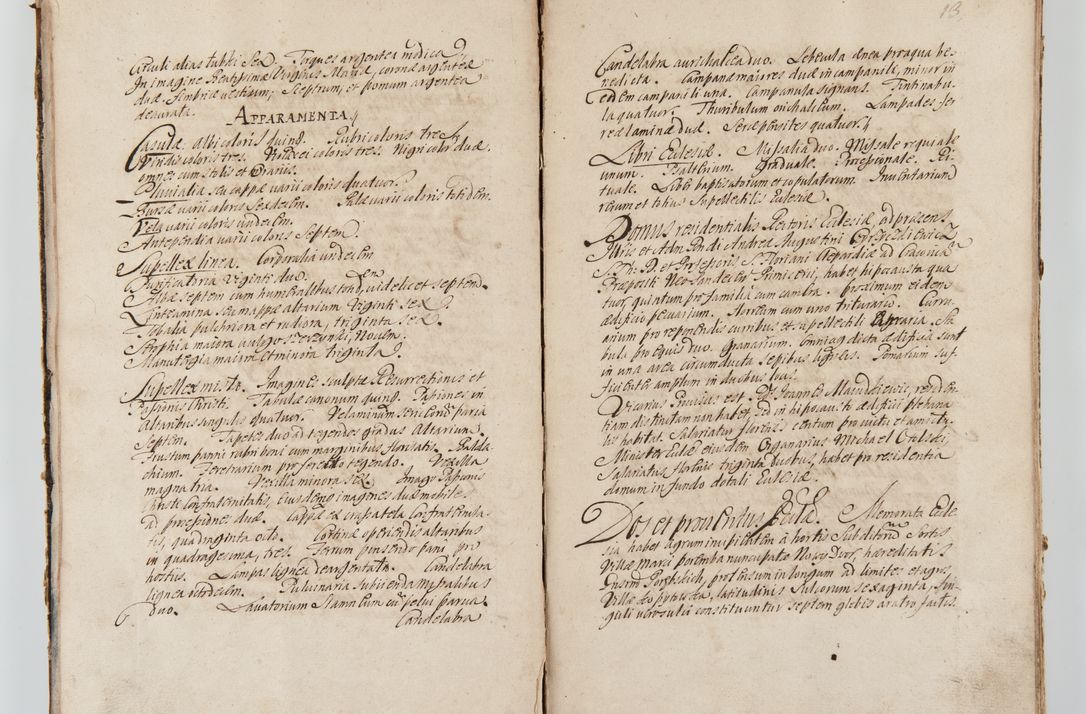 Circuli alias tubki Sex. Toques argentei modica.
In imagine Beatissimæ Virginis Mariæ, coronæ argenteæ
duæ. Fimbriæ vestium, Sceptrum, et pomum argentea
deaurata.
APPARAMENTA
Casulæ albi coloris quinq. Rubri coloris tres.
Viridis coloris tres. Violacei coloris tres. Nigri color duæ.
omnes cum Stolis et Orarijs.
Pluvialia seu cappæ varii coloris quatuor.
Bursæ varii coloris Sexdecim. Pallæ varii coloris totidem.
Vela varii coloris undecim.
Antependia varii coloris Septem.
Supellex linea. Corporalia undecim
Purificatoria Viginti duo.
Albæ Septem cum humeralibus totidem, videlicet septem.
Linteamina seu mappæ altarium Viginti Sex.
Tobalia pulchriora et rudiora, triginta Sex.
Strophia maiora vulgo Novem.
Manutergia maiora et minora triginta.
Supellex mixta. Imagines sculptæ Resurrectionis et
Passionis Christi. Tabulæ canonum quinq. Passiones in
Altaribus singulis quatuor. Velaminum sericeorum paria
Septem. Tapetes duo ad tegendos gradus Altarium.
Frustum panni rubri boni cum marginibus floresatis. Balda-
chium. Feretrarium pro feretro tegendo. Vexilla
magna tria. Vexilla minora sex. Imago Passionis
Christi Confraternitatis, Eiusdemq imagines duæ mobiles
ad processiones duæ. Cappæ ex crapatela Confraternita-
tis, quadraginta octo. Cortinæ operiendis altaribus
in quadragesima, tres. Ferrum pinsendo pani pro
hostijs. Lampas lignea deargentata. Candelabra
lignea undecim. Pulvinaria subijcienda missalibus
duo. Lavatorium Stanneum cum pelvi parva.
Candelabra
13.
Candelabra aurichalcea duo. Lebecula ænea pro aqua be-
nedicta. Campanæ maiores duæ in campanili, minor in
eodem campanili una. Campanula signans. Tintinabu-
la quatuor. Thuribulum orichalceum. Lampades fer
reæ laminæ duæ. Seræ pensiles quatuor.
Libri Ecclesiæ. Missalia duo. Missale requiale
unum. Psalterium. Graduale. Processionale. Ri-
tuale. Libri baptisatorum et copulatorum. Inventarium
rerum et totius Supellectilis Ecclesiæ.
Domus residentialis Rectoris Ecclesiæ ad præsens
Illris et Adm Rndi Andreæ Augustini
S. Th: D. et Professoris S. Floriani Clepardiæ ad Cracoviam
Præpositi Neo Sandecen Primicerii, habet hipocausta qua
tuor, quintum pro familia cum camera. proximum eidem
ædificio pecuarium. Horreum cum uno triturario. Curru-
arium pro reponendis curribus et supellectili agraria. Sta
bula pro equis duo. Granarium. omniaq dicta ædificia sunt
in una area circumducta sepibus ligneis. Pomarium suf
ficienter amplum in duabus
Vicarius Encuratus est Ds Joannes residen
tiam distinctam non habet, sed in hipocausti ædificii plebana
lis habitat. Salariatur florenis centum pro victu et amictu.
Minister Ecclæ eiusdem Organarius Michael
Salariatus florenis triginta duobus, habet pro residentia
domum in fundo dotali Ecclesiæ.
Dos et proventus Ecclæ. Memorata Eccle
sia habet agrum incipientem à hortis Subditorum Sortis
Villæ Marci poremba nuncupatæ Nowy Dwor, hæreditatis
Gnsrm Porębskich, protensum in longum ad limites et agros
Villæ latitudinis Sulcorum sexaginta, Sin-
guli vero sulci constituuntur septem glebis aratro factis.